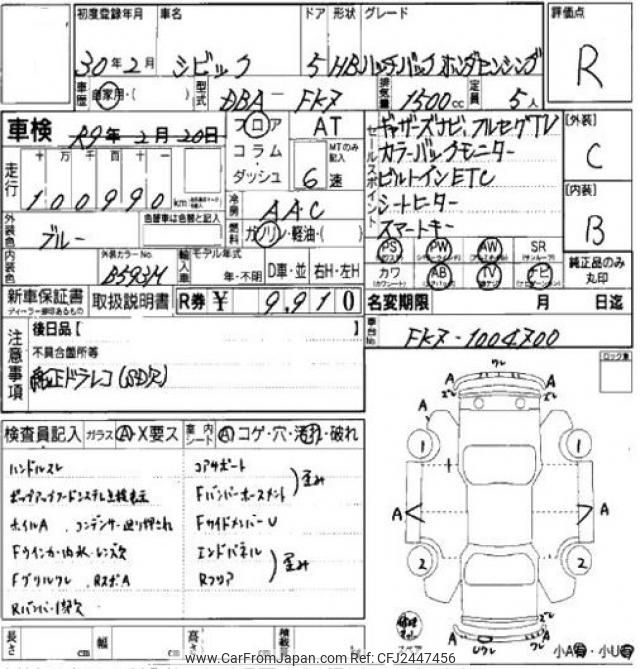 初度登録年月 車名 ドア 形状 グレード 評価点
30年2月 シビック 5 HB ハッチバック ホンダセンシング R
車歴 自家用・( ) 型式 DBA-FK7 排気量 1500cc 定員 5人
車検 R9年2月20日 フロア AT セールスポイント ギャザーズナビ、フルセグTV [外装]
コラム・ MTのみ記入 カラーバックモニター C
走行 十万千百十一 ダッシュ 6速 ビルトインETC
100990km シートヒーター [内装]
冷房 AAC スマートキー B
外装色 ブルー 色替車は色替と記入 燃料 ガソリン・軽油・( )
PS PW AW SR
内装色 外装カラーNo. B593M 輸入車 モデル年式 年・不明 D車・並 右H・左H カワ AB TV ナビ 純正品のみ丸印
新車保証書 取扱説明書 R券 ¥ 9,910 名変期限 月 日迄
ディーラー印あるもの
車台No. FK7-1004700
注意事項 後日品【 】
不具合箇所等
純正ドラレコ(SD欠)
検査員記入 ガラス A・X要ス 室内シート A コゲ・穴・汚れ・破れ
ハンドルスレ コアサポート
ポップアップフードシステム点検表示 Fバンパーホースメント 歪み
ホイルA Fサイドメンバーu
Fウインカー内水・レンズ欠 エンドパネル
Fグリルワレ Rフロア 歪み
ワレ
A A
A A
1 1
A A
2 2
A A
Uワレ
長さ cm 幅 cm 高さ cm 積載量
小A有・小U有
www.CarFromJapan.com Ref: CFJ2447456